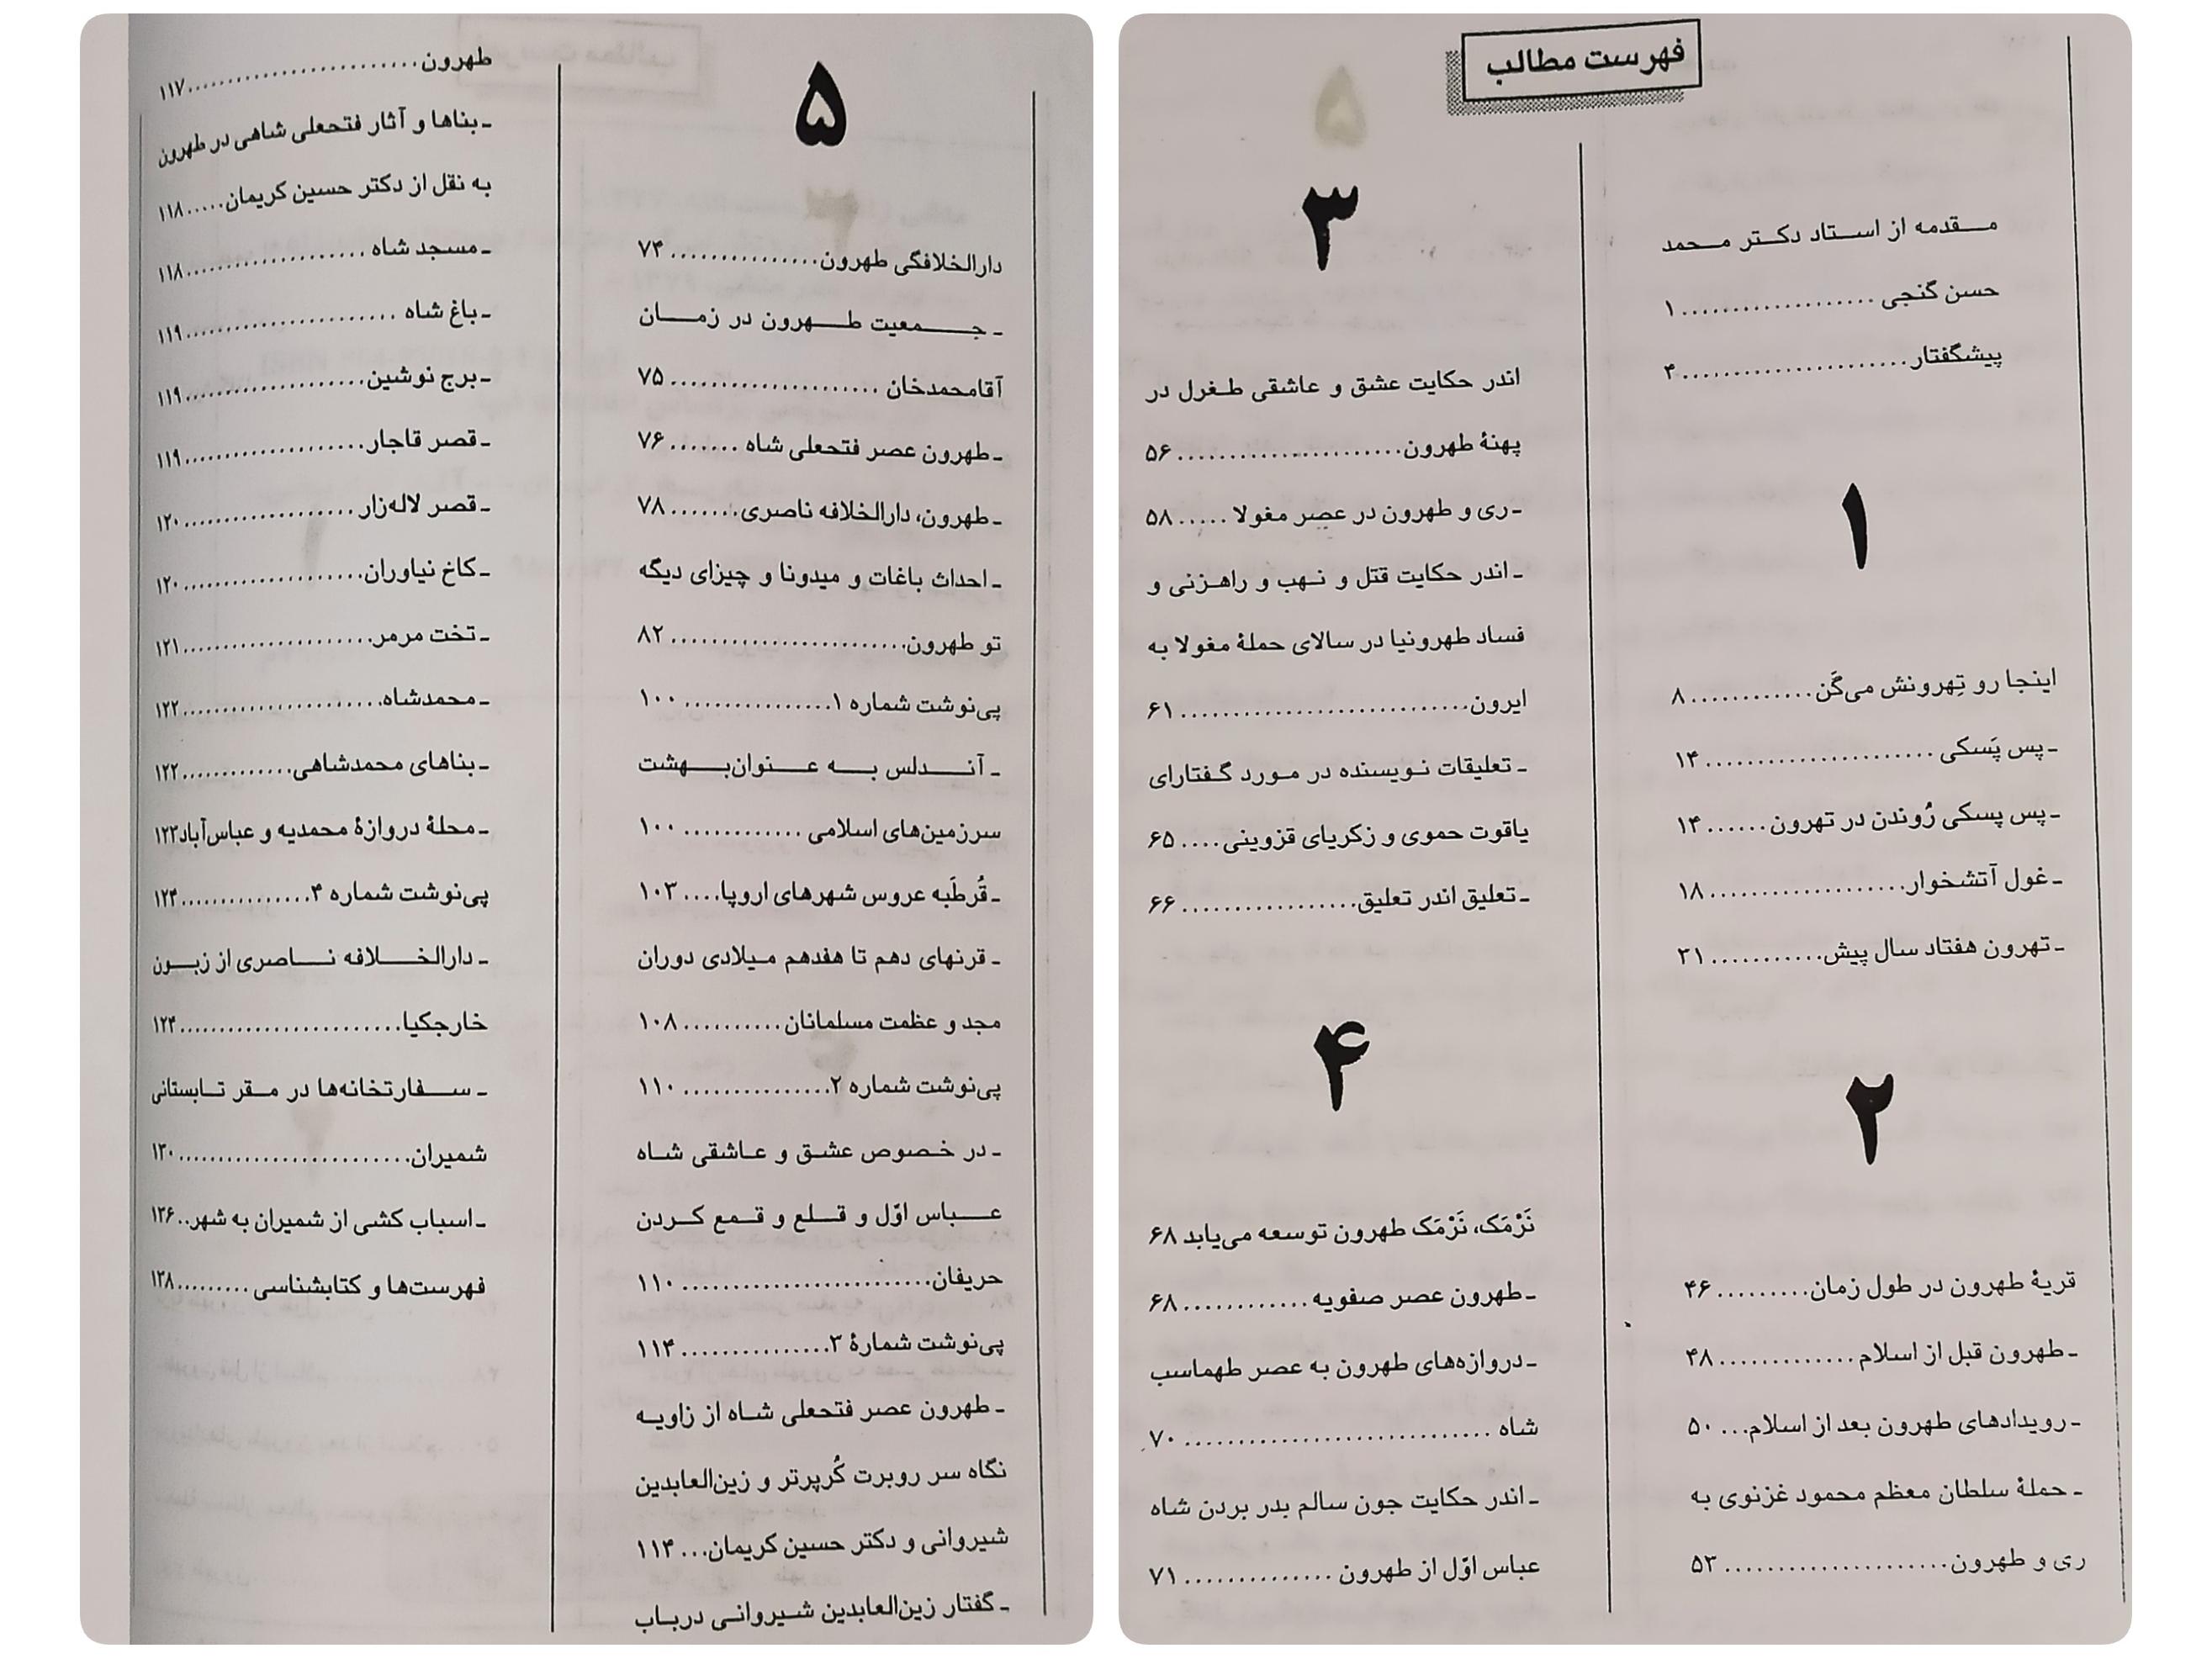 فهرست مطالب
مقدمه از استاد دکتر محمد
حسن گنجی ................... ۱
پیشگفتار...................... ۴
۱
اینجا رو تِهرونش می‌گَن............ ۸
ـ پس پَسکی ...................... ۱۴
ـ پس پسکی رُوندن در تهرون...... ۱۴
ـ غول آتشخوار................... ۱۸
ـ تهرون هفتاد سال پیش........... ۲۱
۲
قریهٔ طهرون در طول زمان......... ۴۶
ـ طهرون قبل از اسلام............. ۴۸
ـ رویدادهای طهرون بعد از اسلام... ۵۰
ـ حملهٔ سلطان معظم محمود غزنوی به
ری و طهرون..................... ۵۳
۳
اندر حکایت عشق و عاشقی طغرل در
پهنهٔ طهرون...................... ۵۶
ـ ری و طهرون در عصر مغولا ..... ۵۸
ـ اندر حکایت قتل و نهب و راهزنی و
فساد طهرونیا در سالای حملهٔ مغولا به
ایرون............................ ۶۱
ـ تعلیقات نویسنده در مورد گفتارای
یاقوت حموی و زکریای قزوینی.... ۶۵
ـ تعلیق اندر تعلیق................. ۶۶
۴
نَرْمَک، نَرْمَک طهرون توسعه می‌یابد ۶۸
ـ طهرون عصر صفویه............. ۶۸
ـ دروازه‌های طهرون به عصر طهماسب
شاه .............................. ۷۰
ـ اندر حکایت جون سالم بدر بردن شاه
عباس اوّل از طهرون .............. ۷۱
۵
دارالخلافگی طهرون............... ۷۴
ـ جمعیت طهرون در زمان
آقامحمدخان ..................... ۷۵
ـ طهرون عصر فتحعلی شاه ....... ۷۶
ـ طهرون، دارالخلافه ناصری....... ۷۸
ـ احداث باغات و میدونا و چیزای دیگه
تو طهرون....................... ۸۲
پی‌نوشت شماره ۱............... ۱۰۰
ـ آندلس به عنوان‌بهشت
سرزمین‌های اسلامی ............ ۱۰۰
ـ قُرطَبه عروس شهرهای اروپا.... ۱۰۳
ـ قرنهای دهم تا هفدهم میلادی دوران
مجد و عظمت مسلمانان.......... ۱۰۸
پی‌نوشت شماره ۲............... ۱۱۰
ـ در خصوص عشق و عاشقی شاه
عباس اوّل و قلع و قمع کردن
حریفان......................... ۱۱۰
پی‌نوشت شمارهٔ ۳............... ۱۱۴
ـ طهرون عصر فتحعلی شاه از زاویه
نگاه سر روبرت کُرپرتر و زین‌العابدین
شیروانی و دکتر حسین کریمان... ۱۱۴
ـ گفتار زین‌العابدین شیروانی درباب
طهرون........................ ۱۱۷
ـ بناها و آثار فتحعلی شاهی در طهرون
به نقل از دکتر حسین کریمان..... ۱۱۸
ـ مسجد شاه .................... ۱۱۸
ـ باغ شاه ....................... ۱۱۹
ـ برج نوشین.................... ۱۱۹
ـ قصر قاجار.................... ۱۱۹
ـ قصر لاله‌زار ................... ۱۲۰
ـ کاخ نیاوران.................... ۱۲۰
ـ تخت مرمر.................... ۱۲۱
ـ محمدشاه...................... ۱۲۲
ـ بناهای محمدشاهی............. ۱۲۲
ـ محلهٔ دروازهٔ محمدیه و عباس‌آباد۱۲۳
پی‌نوشت شماره ۴............... ۱۲۴
ـ دارالخلافه ناصری از زبون
خارجکیا........................ ۱۲۴
ـ سفارتخانه‌ها در مقر تابستانی
شمیران......................... ۱۳۰
ـ اسباب کشی از شمیران به شهر.. ۱۳۶
فهرست‌ها و کتابشناسی ......... ۱۳۸